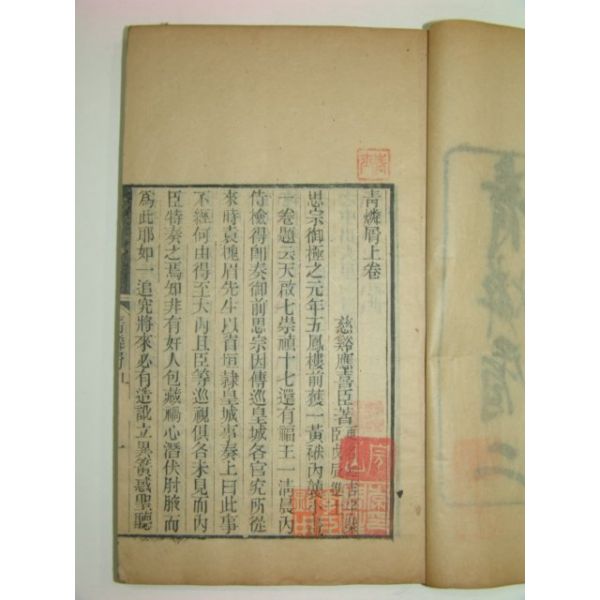 青燐屑上卷
慈谿應喜臣著
思宗御極之元年五鳳樓前獲一黃袱內襲小
一卷題云天啟七崇禎十七還有福王一清晨內
侍檢得卽奏御前思宗因傳巡皇城各官究所從
來時袁槐眉先生以省垣隸皇城事奏上曰此事
不經何由得至大內且臣等巡視俱各未見而內
臣特奏之焉知非有奸人包藏禍心潛伏肘腋而
爲此耶如一追究將來必有造訛立異簧惑聖聽
青燐屑
二